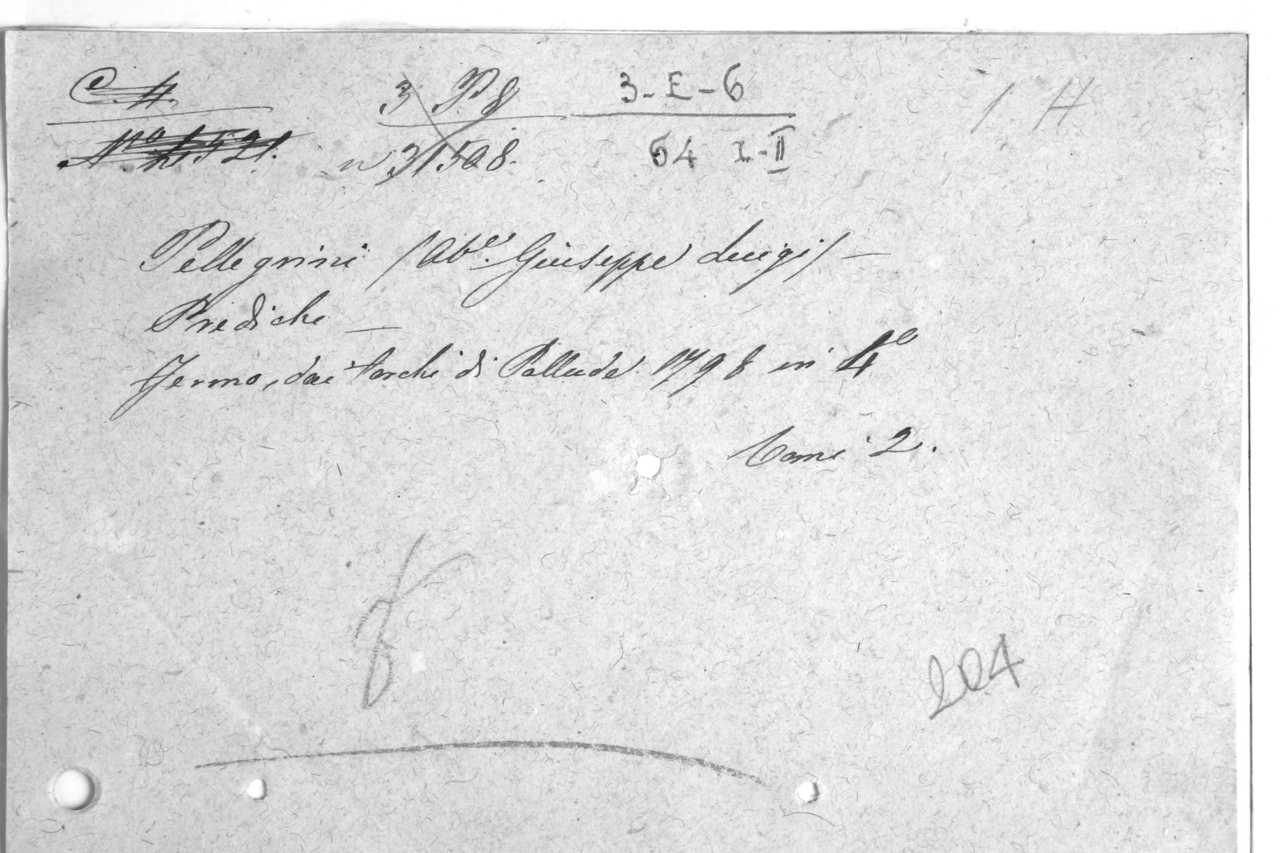 C. H. 3 P 8 3-E-6 1 H
No 1521. n 31508. 64 I-II
Pellegrini (Ab.e Giuseppe Luigi) —
Prediche —
Fermo, dai Torchi di Pallade 1798 in 4o
Tomi 2.
204